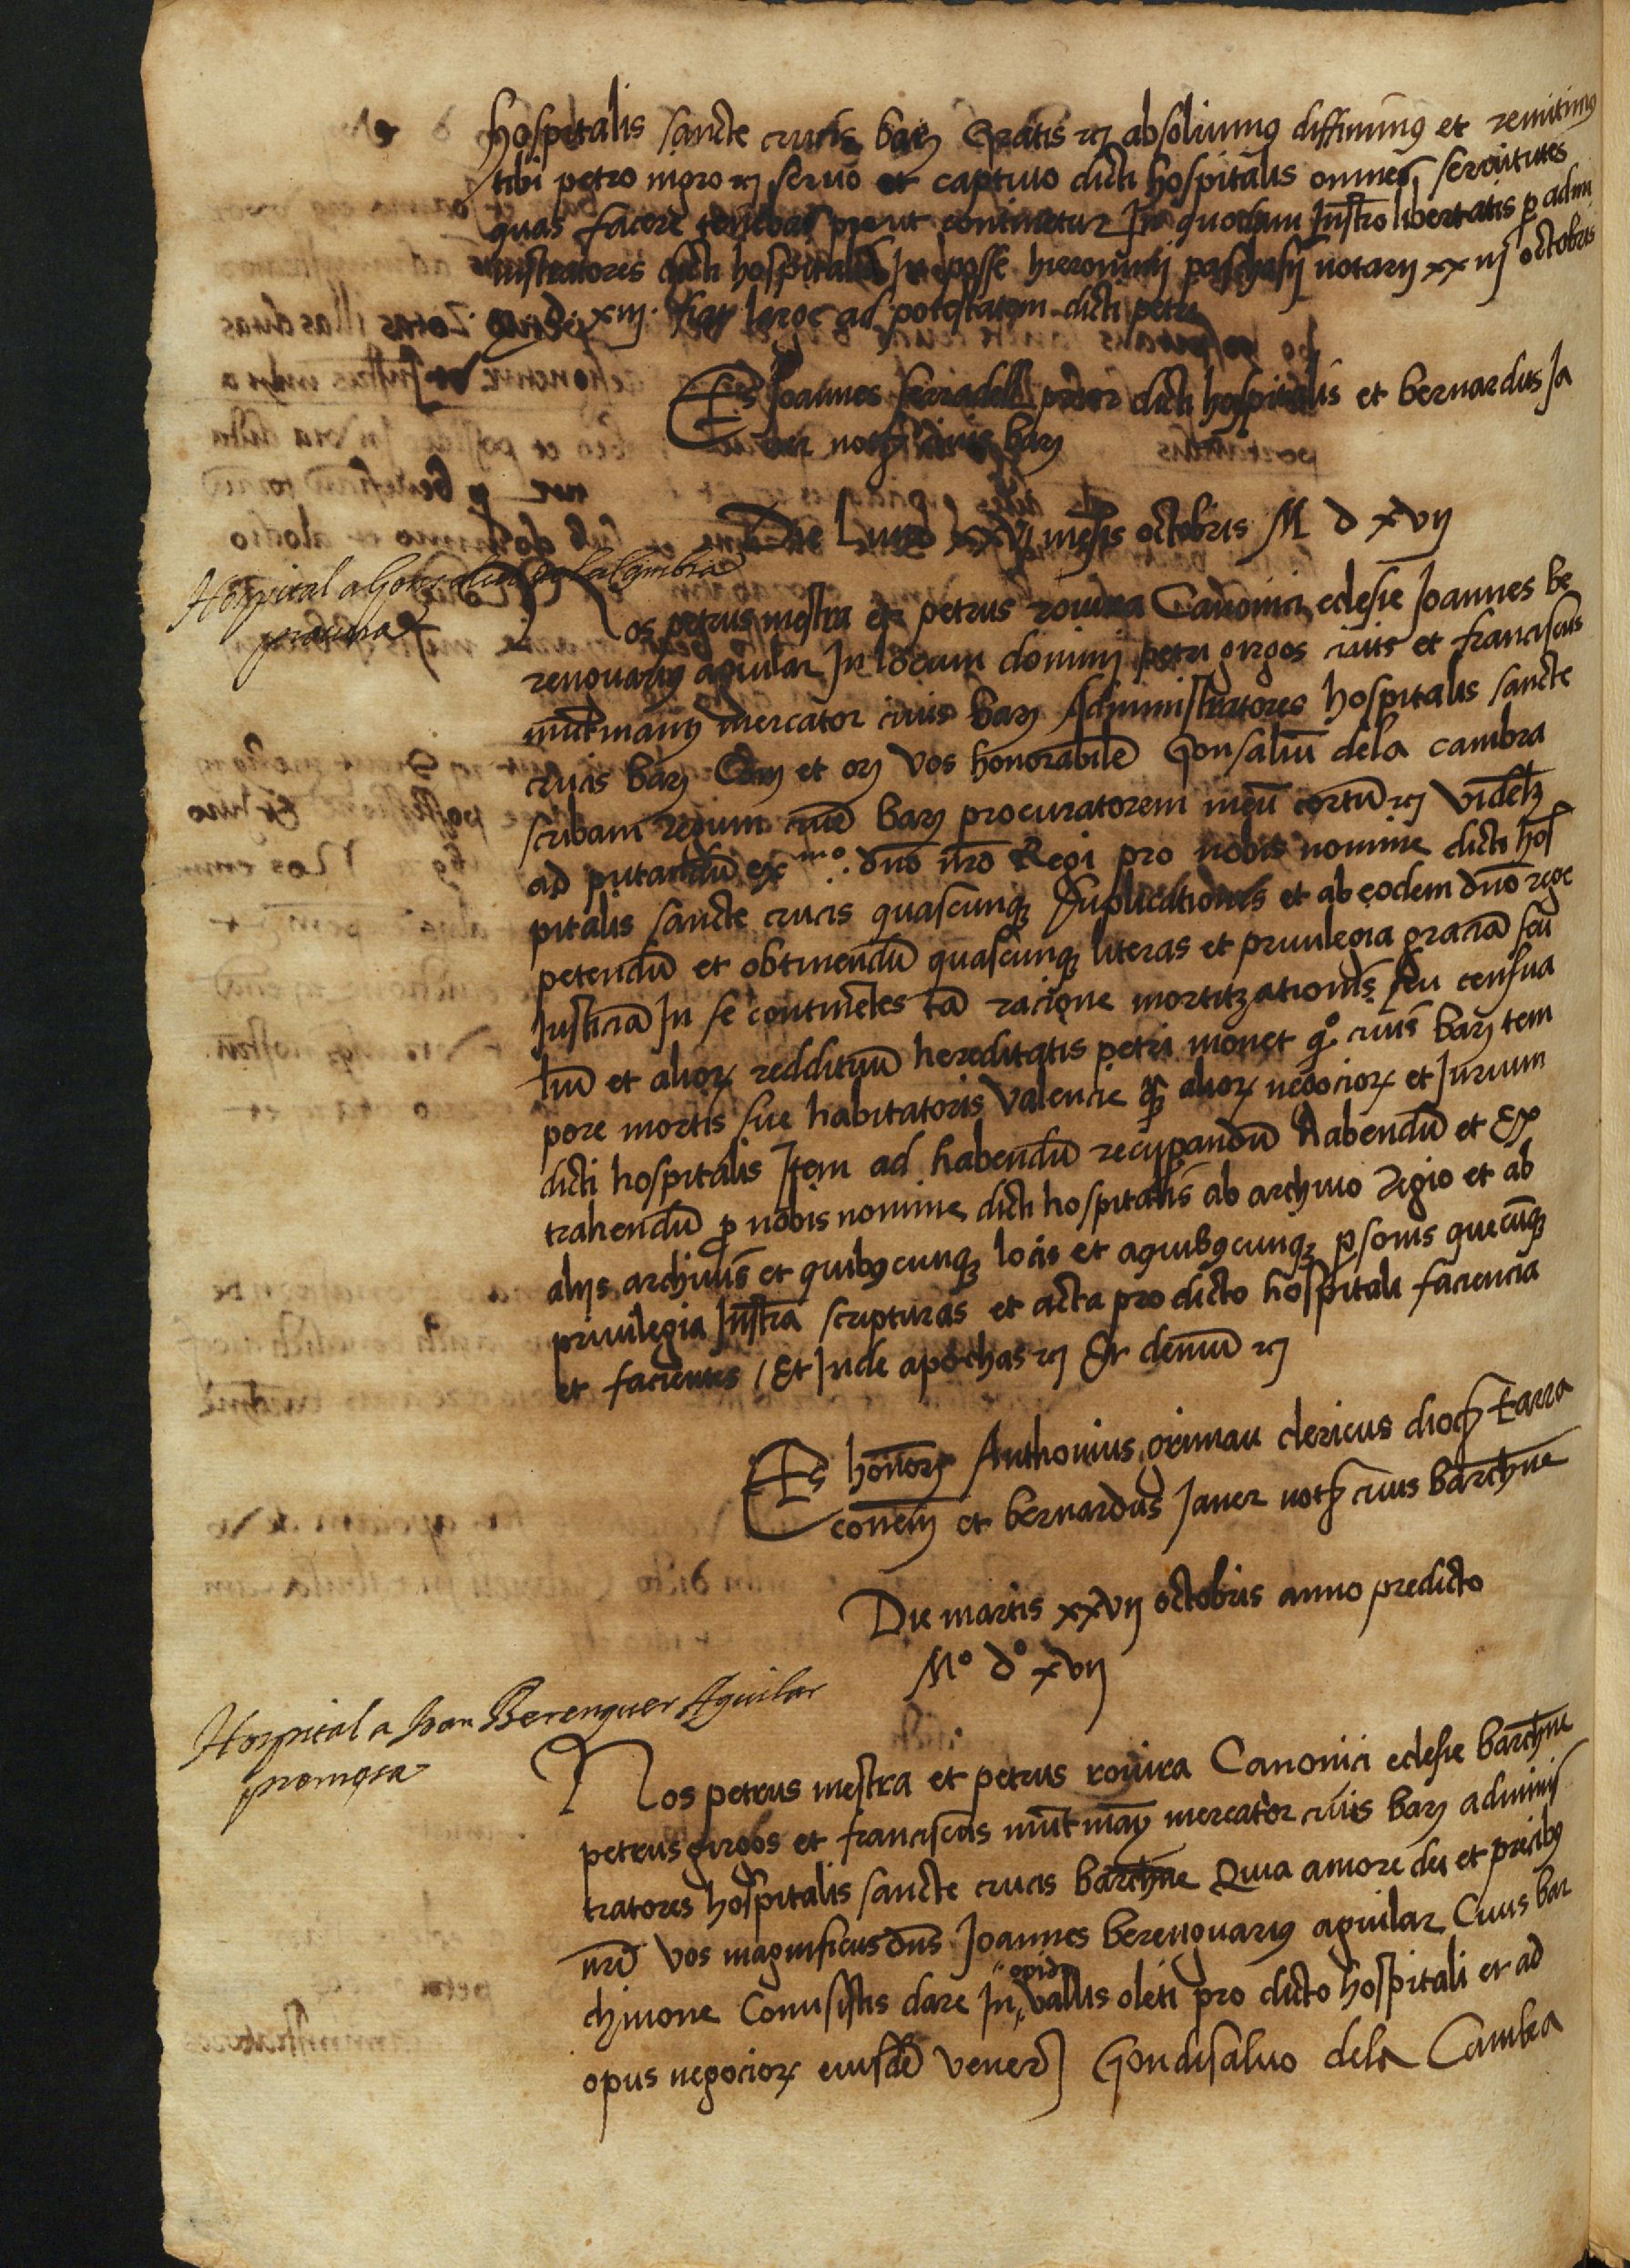 hospitalis sancte crucis barñ Gratis etc absoluimus diffinimus et remitimus
tibi petro nigro etc seruo et captiuo dicti hospitalis omnes seruitutes
quas facere tenebas prout continetur In quodam Instro libertatis p admi
nistratores dicti hospitalis In posse hieronimi paschasij notarij xx iij octobris
xiij. fiat large ad potestatem dicti petri
Ts Joannes ferradell prior dicti hospitalis et bernardus Ja
uer notus ciuis barñ
Die Lune xxvj mensis octobris M d xvij
Hospital a Gonsaluo de la Cambra
procura
Nos petrus mestra et petrus rouira Canonici eclesie Joannes be
renguarius aguilar In locum domini petri girgos ciuis et franciscus
muntmany mercator ciuis barñ Administratores hospitalis sancte
crucis barñ Com et or Vos honorabilē Gonsaluū dela cambra
scribam regium ciuē barñ procuratorem meū certū etc Videlz
ad putandū exmo. dno nro Regi pro nobis nomine dicti hos
pitalis sancte crucis quascunq suplicationes et ab eodem dno rege
petendū et obtinendū quascunq literas et priuilegia graciā seu
Justiciā In se continētes tā racione mortitzationis seu censua
liū et alior reddituū hereditatis petri monet qo. ciuis barñ tem
pore mortis sue habitatoris Valencie q alior negocior et Jurium
dicti hospitalis Item ad habendū recuperandū habendū et Ex
trahendū p nobis nomine dicti hospitalis ab archiuo regio et ab
alijs archiuis et quibuscunq locis et a quibuscunq psonis quecūq
priuilegia Instra scripturas et acta pro dicto hospitali faciencia
et facientes / Et Inde apochas etc Et demū etc
Ts honor Anthonius grimau clericus dioc tarra
conen et bernardus Jauer not ciuis barchne
Die martis xxvij octobris anno predicto
Mo do xvij
Hospital a Joan Berenguer Aguilar
promesa
Nos petrus mestra et petrus rouira Canonici eclesie barchne
petrus girgos et franciscus muntmany mercator ciuis barñ adminis
tratores hospitalis sancte crucis barchne Quia amore dei et precibus
nris Vos magnificus dns Joannes berenguarius aguilar Ciuis bar
chinone Conuisistis dare In opido Vallis oleti pro dicto hospitali et ad
opus negocior eiusdē Vener Gondisaluo dela Cambra